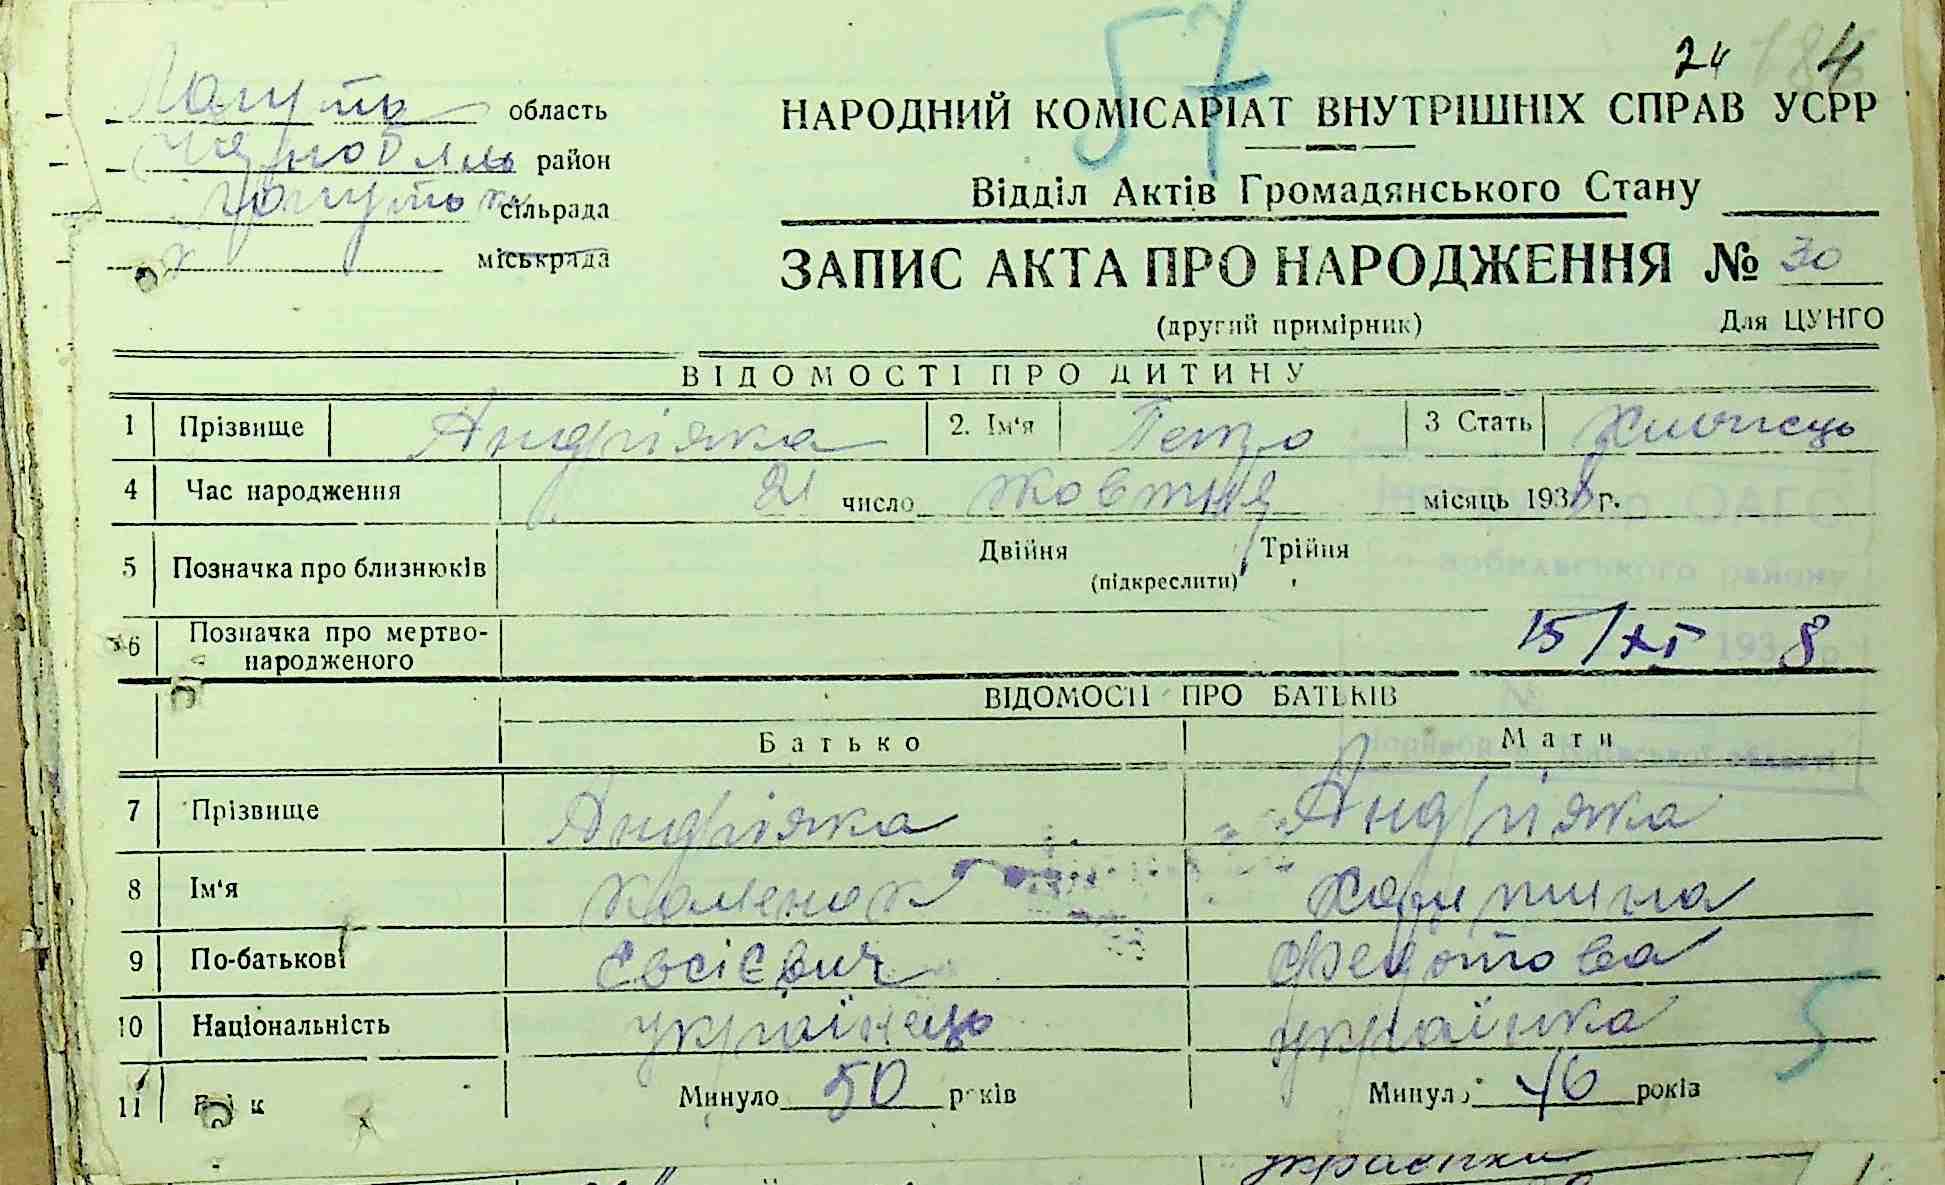 57
24 4
область
район
сільрада
міськрада
НАРОДНИЙ КОМІСАРІАТ ВНУТРІШНІХ СПРАВ УСРР
Відділ Актів Громадянського Стану
ЗАПИС АКТА ПРО НАРОДЖЕННЯ № 30
(другий примірник) Для ЦУНГО
ВІДОМОСТІ ПРО ДИТИНУ
1 Прізвище Андріяка 2. Ім'я Петро 3 Стать Хлопець
4 Час народження 21 число жовтня місяць 1938 г.
5 Позначка про близнюків Двійня Трійня
(підкреслити)
6 Позначка про мертво-
народженого
15/XI 8
ВІДОМОСТІ ПРО БАТЬКІВ
Батько Мати
7 Прізвище Андріяка Андріяка
8 Ім'я
9 По-батькові Євсієвич Федотова
10 Національність українець українка
5
11 Вік Минуло 50 років Минуло 46 років
українка